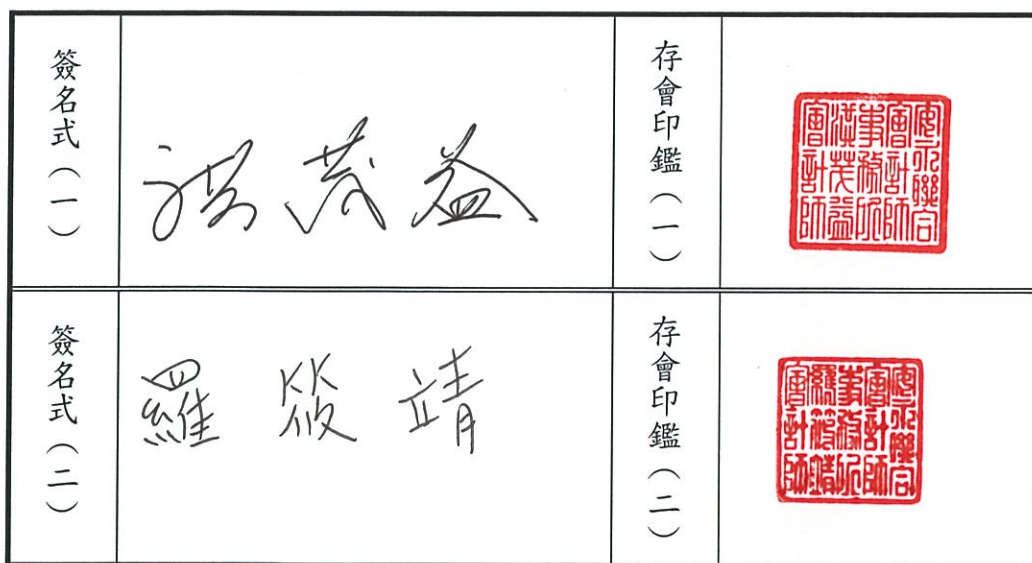 簽名式(一)
洪茂益
存會印鑑(一)
安永聯合
會計師
事務所
洪茂益
會計師
簽名式(二)
羅筱靖
存會印鑑(二)
安永聯合
會計師
事務所
羅筱靖
會計師